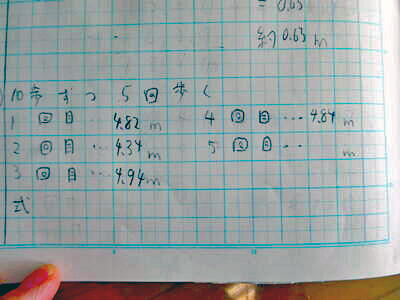 = 0.63
約0.63m
10歩ずつ5回歩く
1回目…4.82m 4回目…4.84m
2回目…4.34m 5回目… m
3回目…4.94m
式